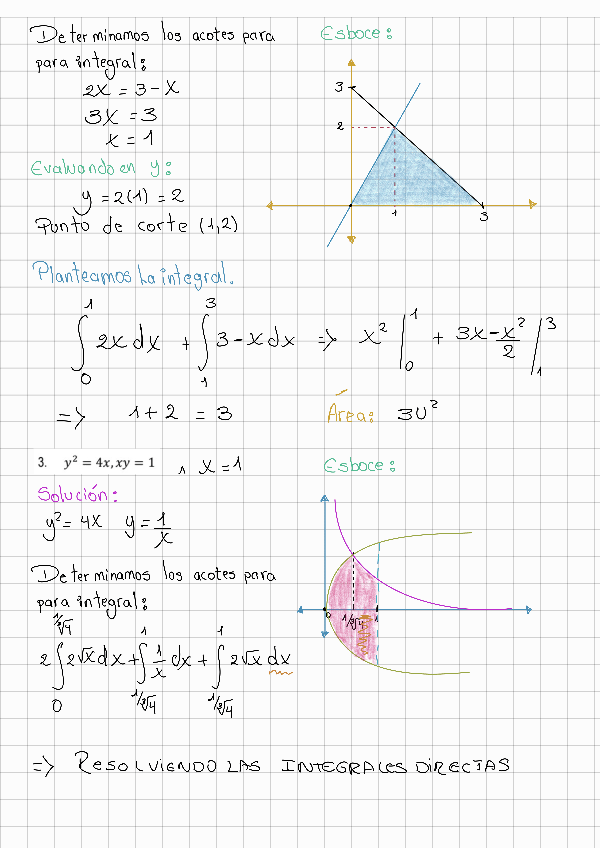 Determinamos los acotes para
para integral:
2x = 3 - x
3x = 3
x = 1
Evaluando en y:
y = 2(1) = 2
Punto de corte (1,2)
Esboce:
3
2
1
3
Planteamos la integral.
∫₀¹ 2x dx + ∫₁³ 3 - x dx => x² |₀¹ + 3x - x²/2 |₁³
=> 1 + 2 = 3
Área: 3U²
3. y² = 4x, xy = 1 ∧ x = 1
Solución:
y² = 4x y = 1/x
Determinamos los acotes para
para integral:
2 ∫₀^(1/∛4) 2√x dx + ∫_(1/∛4)^1 1/x dx + ∫_(1/∛4)^1 2√x dx
Esboce:
0 1/∛4 1
=> RESOLVIENDO LAS INTEGRALES DIRECTAS